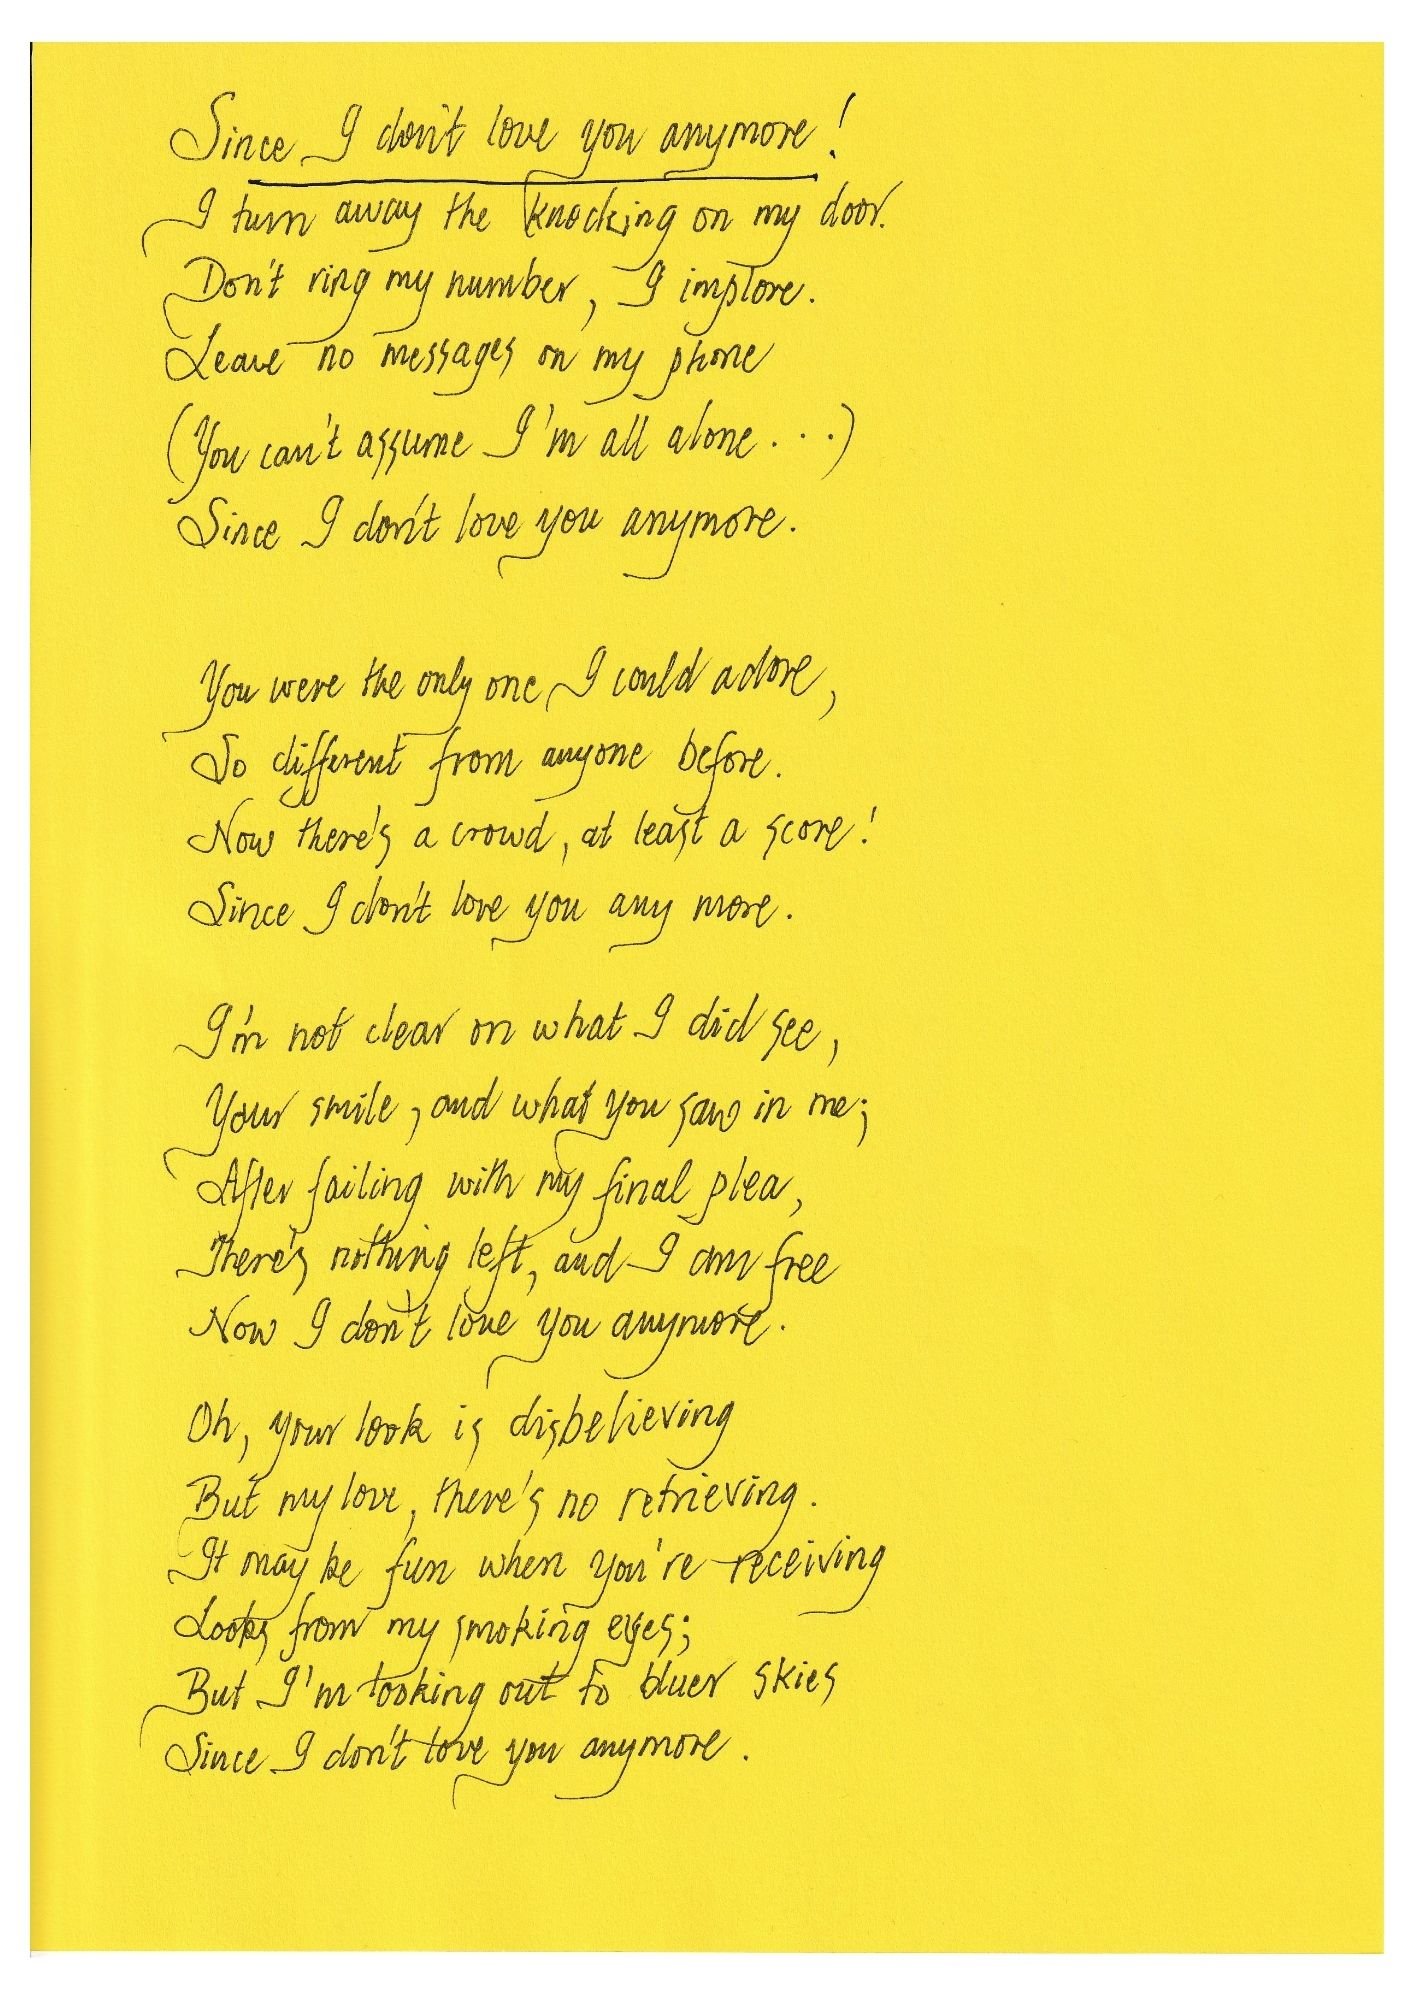 Since I don't love you anymore!
I turn away the knocking on my door.
Don't ring my number, I implore.
Leave no messages on my phone
(You can't assume I'm all alone...)
Since I don't love you anymore.
You were the only one I could adore,
So different from anyone before.
Now there's a crowd, at least a score!
Since I don't love you any more.
I'm not clear on what I did see,
Your smile, and what you saw in me;
After failing with my final plea,
There's nothing left, and I am free
Now I don't love you anymore.
Oh, your look is disbelieving
But my love, there's no retrieving.
It may be fun when you're receiving
Looks from my smoking eyes;
But I'm looking out to bluer skies
Since I don't love you anymore.